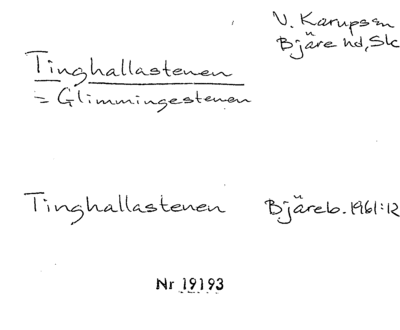 V. Karups sn
Bjäre hd, Sk
Tinghallastenen
= Glimmingestenen
Tinghallastenen Bjäreb. 1961:12
Nr 19193